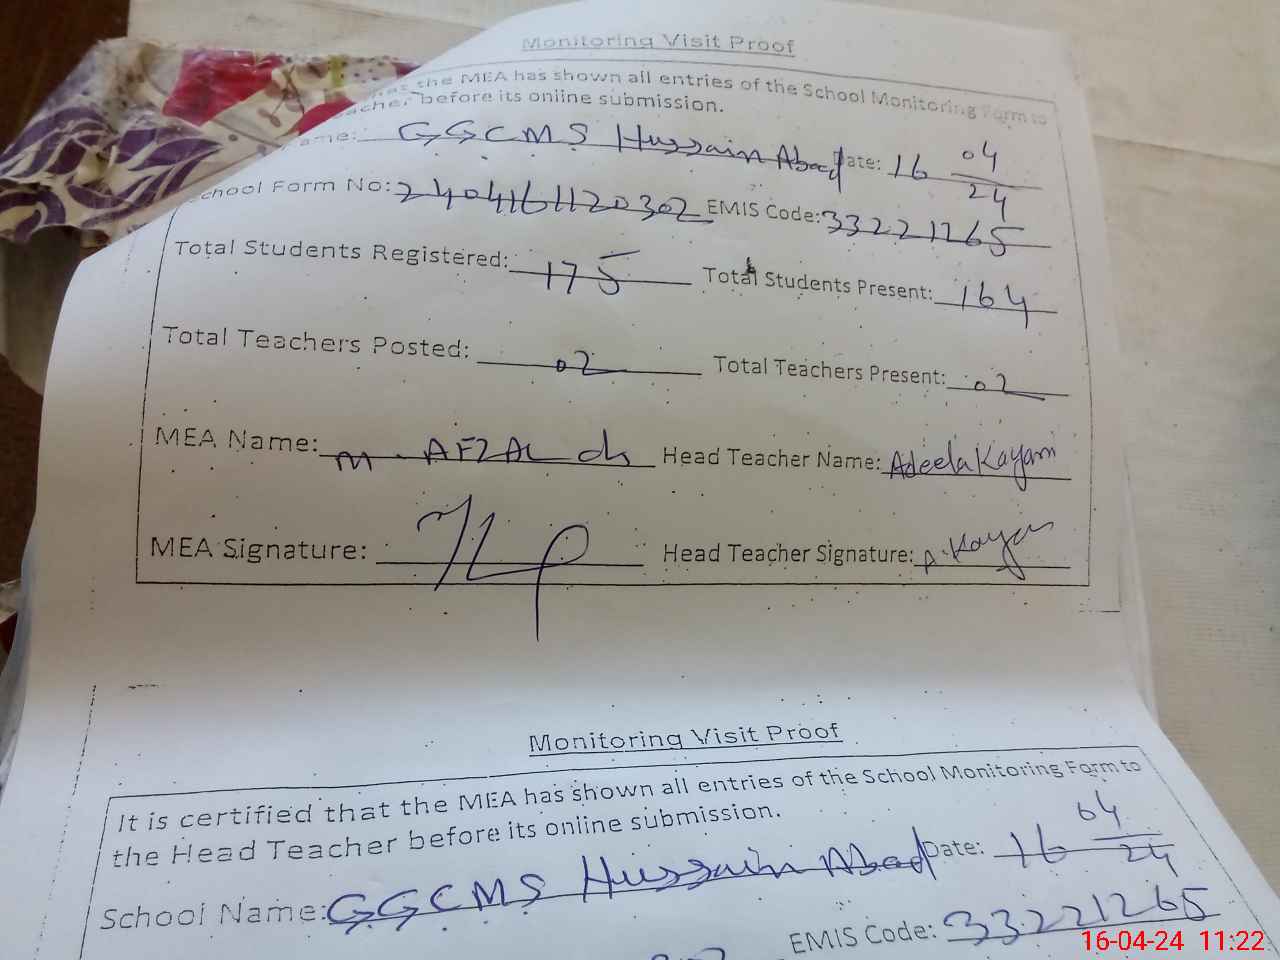 Monitoring Visit Proof
the MEA has shown all entries of the School Monitoring Form to
before its online submission.
ame: GGCMS Hussain Abad Date: 16 04/24
School Form No: 2404161120302 EMIS Code: 33221265
Total Students Registered: 175 Total Students Present: 164
Total Teachers Posted: 02 Total Teachers Present: 02
MEA Name: M. AFZAL Head Teacher Name: Adeela Kayani
MEA Signature: Head Teacher Signature: A. Kayani
Monitoring Visit Proof
It is certified that the MEA has shown all entries of the School Monitoring Form to
the Head Teacher before its online submission.
School Name: GGCMS Hussain Abad Date: 16 04/24
EMIS Code: 33221265
16-04-24 11:22